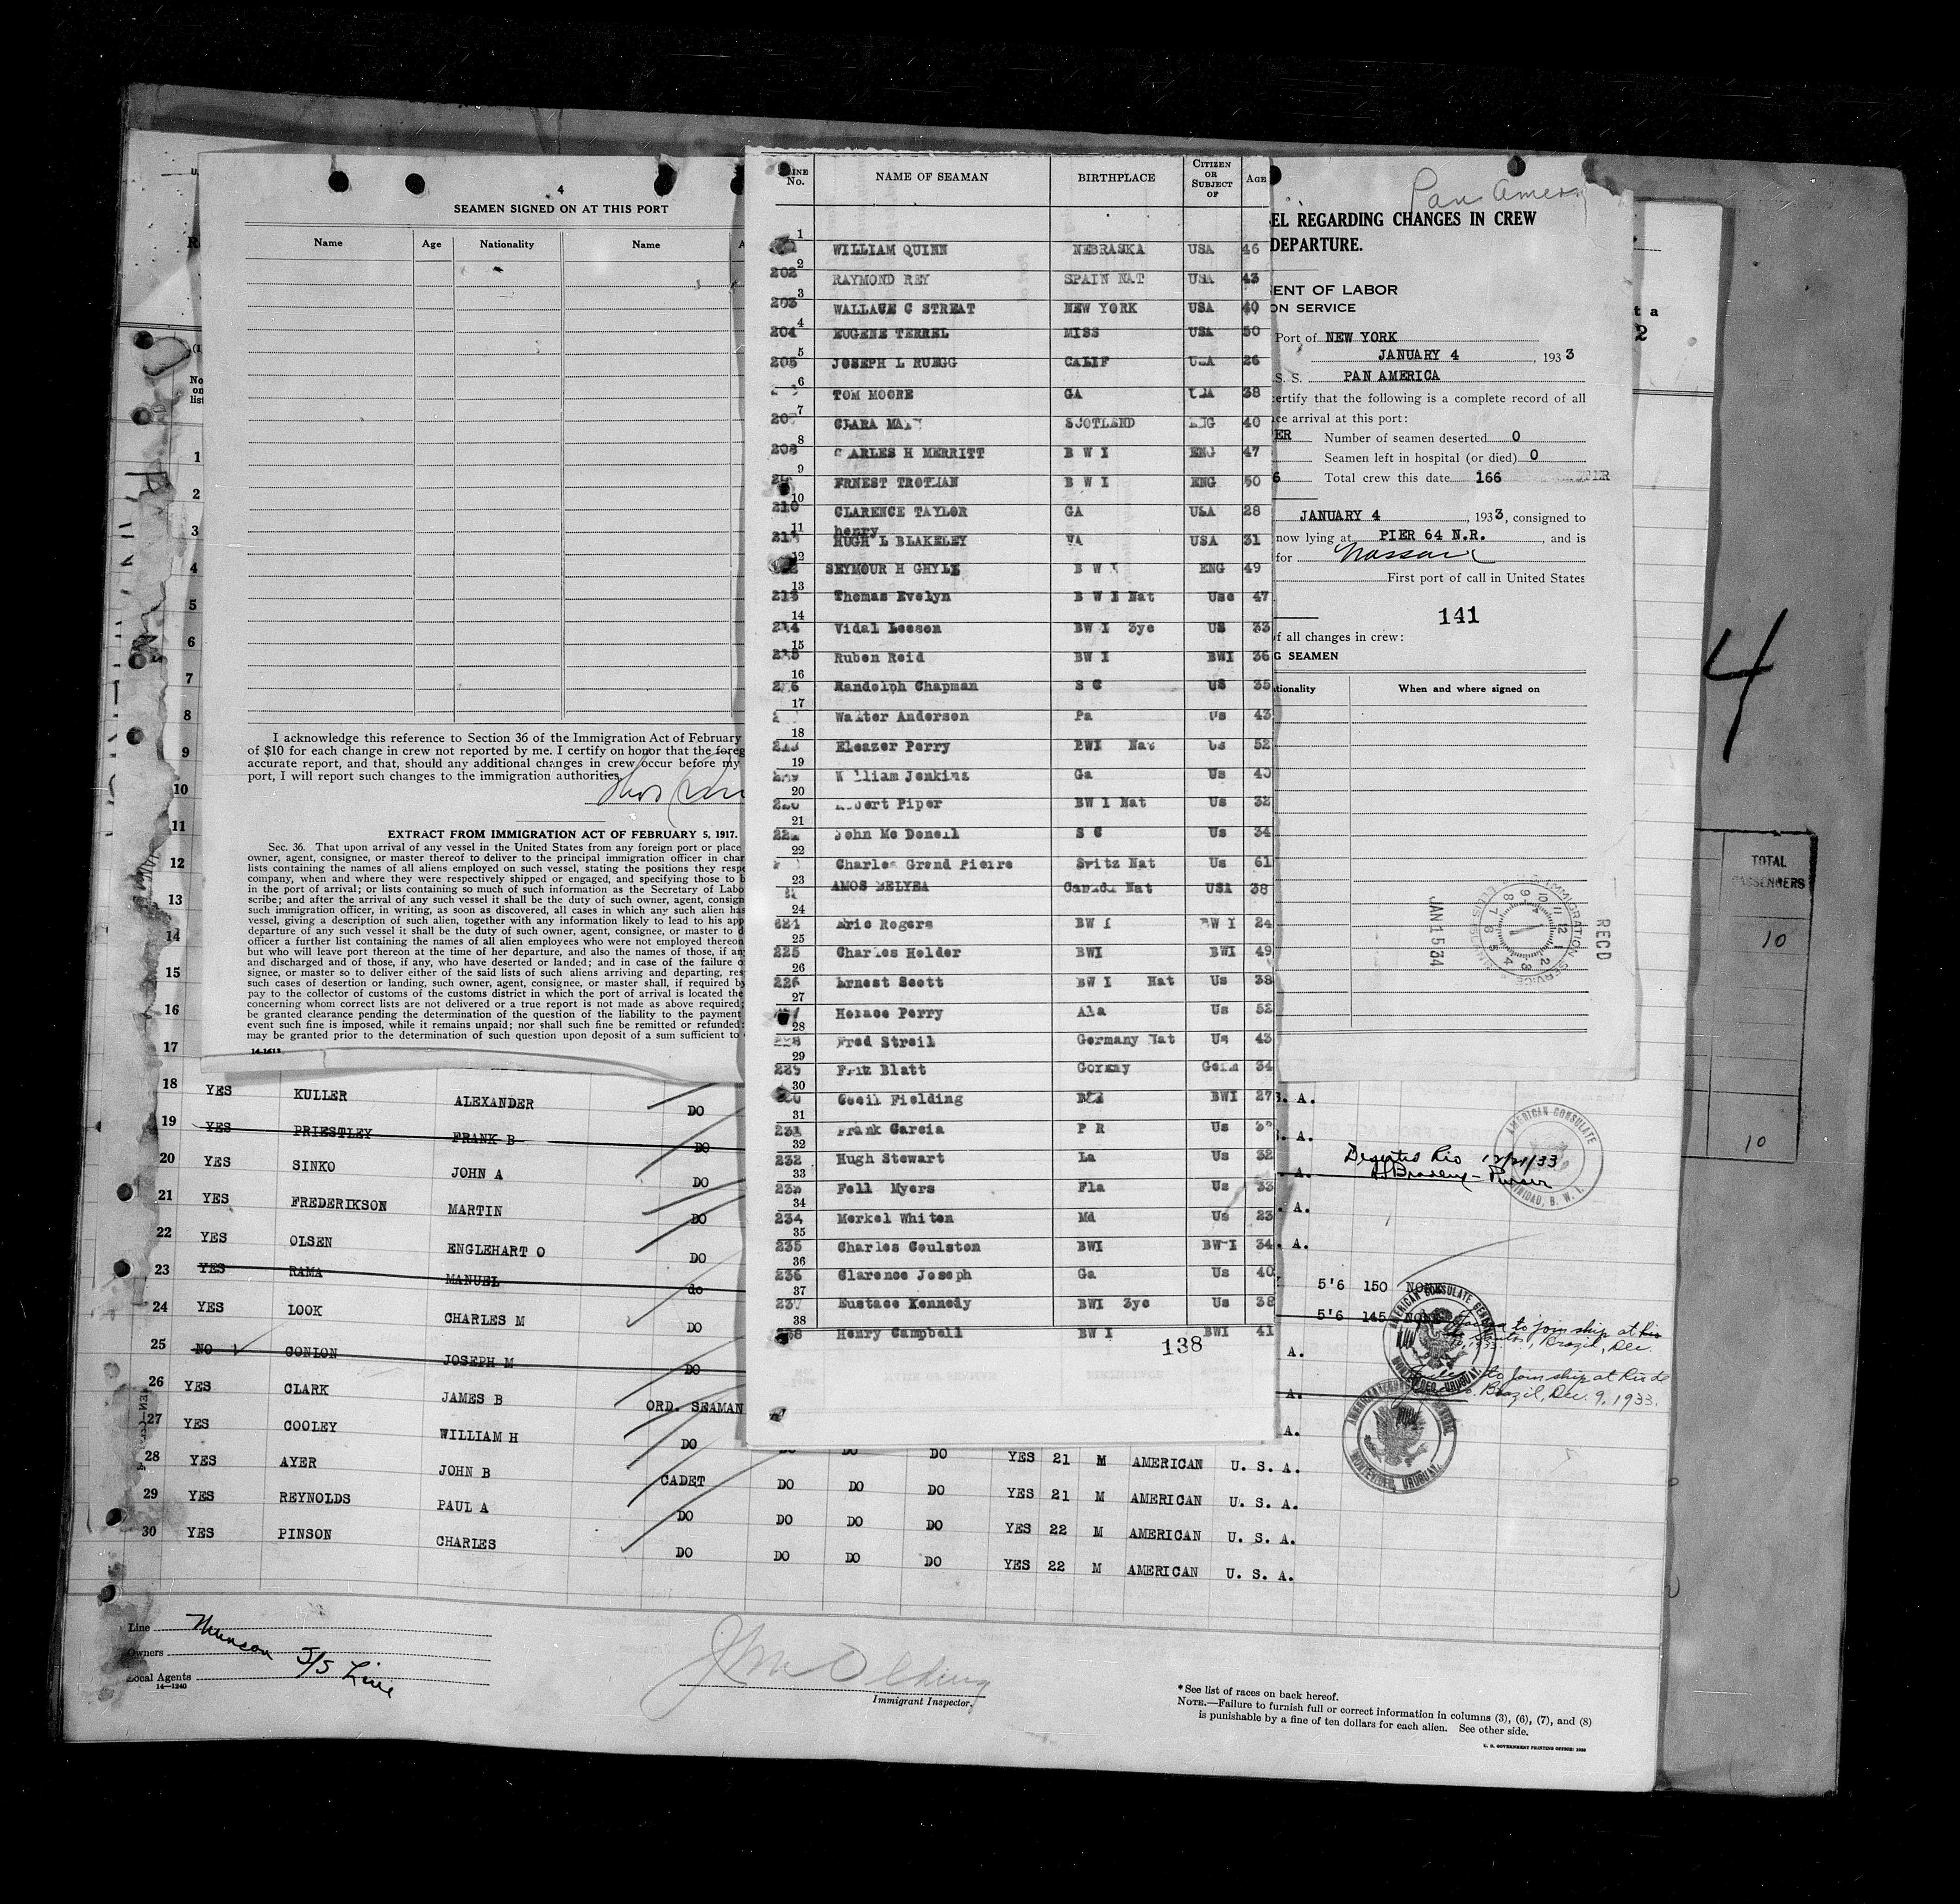 4
SEAMEN SIGNED ON AT THIS PORT
Name Age Nationality Name
I acknowledge this reference to Section 36 of the Immigration Act of February
of $10 for each change in crew not reported by me. I certify on honor that the foreg
accurate report, and that, should any additional changes in crew occur before my
port, I will report such changes to the immigration authorities
EXTRACT FROM IMMIGRATION ACT OF FEBRUARY 5, 1917.
Sec. 36. That upon arrival of any vessel in the United States from any foreign port or place
owner, agent, consignee, or master thereof to deliver to the principal immigration officer in char
lists containing the names of all aliens employed on such vessel, stating the positions they resp
company, when and where they were respectively shipped or engaged, and specifying those to b
in the port of arrival; or lists containing so much of such information as the Secretary of Labo
scribe; and after the arrival of any such vessel it shall be the duty of such owner, agent, consign
such immigration officer, in writing, as soon as discovered, all cases in which any such alien has
vessel, giving a description of such alien, together with any information likely to lead to his app
departure of any such vessel it shall be the duty of such owner, agent, consignee, or master to d
officer a further list containing the names of all alien employees who were not employed thereon
but who will leave port thereon at the time of her departure, and also the names of those, if an
and discharged and of those, if any, who have deserted or landed; and in case of the failure o
signee, or master so to deliver either of the said lists of such aliens arriving and departing, res
such cases of desertion or landing, such owner, agent, consignee, or master shall, if required by
pay to the collector of customs of the customs district in which the port of arrival is located the
concerning whom correct lists are not delivered or a true report is not made as above required;
be granted clearance pending the determination of the question of the liability to the payment
event such fine is imposed, while it remains unpaid; nor shall such fine be remitted or refunded:
may be granted prior to the determination of such question upon deposit of a sum sufficient to
LINE No. NAME OF SEAMAN BIRTHPLACE CITIZEN OR SUBJECT OF AGE
1 WILLIAM QUINN NEBRASKA USA 46
202 2 RAYMOND REY SPAIN NAT USA 43
203 3 WALLACE C STREAT NEW YORK USA 40
204 4 EUGENE TERREL MISS USA 50
205 5 JOSEPH L RUEGG CALIF USA 26
6 TOM MOORE GA USA 38
7 CLARA SCOTLAND ENG 40
208 8 CHARLES H MERRITT B W I ENG 47
9 ERNEST TROTMAN B W I ENG 50
210 10 CLARENCE TAYLOR GA USA 28
11 henry
HUGH L BLAKELEY VA USA 31
12 SEYMOUR H GHYLE B W I ENG 49
213 13 Thomas Evelyn B W I Nat Use 47
214 14 Vidal Leeson BW I 3yc US 33
215 15 Ruben Reid BW I BWI 36
216 16 Randolph Chapman S C US 35
17 Walter Anderson Pa Us 43
218 18 Eleazer Perry BWI Nat Us 52
219 19 William Jenkins Ga Us 40
220 20 Robert Piper BW I Nat Us 32
21 John Mc Donell S C Us 34
22 Charles Grand Pierre Switz Nat Us 61
23 AMOS BELYEA Canada Nat USA 38
224 24 Eric Rogers BW I BW I 24
225 25 Charles Holder BWI BWI 49
226 26 Ernest Scott BW I Nat Us 38
27 Horace Perry Ala Us 52
228 28 Fred Streil Germany Nat Us 43
229 29 Fritz Blatt Germay Germ 34
30 Cecil Fielding BWI BWI 27
231 31 Frank Garcia P R Us
232 32 Hugh Stewart La Us 32
233 33 Fell Myers Fla Us 33
234 34 Merkel Whiten Md Us 23
235 35 Charles Coulston BWI BW-I 34
236 36 Clarence Joseph Ga Us 40
237 37 Eustace Kennedy BWI 3yc Us 38
38 Henry Campbell BW I BWI 41
138
Pan Amer
EL REGARDING CHANGES IN CREW
DEPARTURE.
ENT OF LABOR
ON SERVICE
Port of NEW YORK
JANUARY 4, 1933
S. S. PAN AMERICA
ertify that the following is a complete record of all
ce arrival at this port:
ER Number of seamen deserted 0
Seamen left in hospital (or died) 0
6 Total crew this date 166
JANUARY 4, 1933, consigned to
now lying at PIER 64 N.R., and is
for Nassau
First port of call in United States
141
of all changes in crew:
G SEAMEN
tionality When and where signed on
JAN 15 34
IMMIGRATION SERVICE
RECD
4
TOTAL
PASSENGERS
10
10
1
2
3
4
5
6
7
8
9
10
11
12
13
14
15
16
17
18 YES KULLER ALEXANDER DO
19 YES PRIESTLEY FRANK B DO
20 YES SINKO JOHN A DO
21 YES FREDERIKSON MARTIN DO
22 YES OLSEN ENGLEHART O DO
23 YES RAMA MANUEL do
24 YES LOOK CHARLES M DO
25 NO 1 CONLON JOSEPH M DO
26 YES CLARK JAMES B ORD. SEAMAN
27 YES COOLEY WILLIAM H DO DO DO DO YES 21 M AMERICAN U. S. A.
28 YES AYER JOHN B CADET DO DO DO YES 21 M AMERICAN U. S. A.
29 YES REYNOLDS PAUL A DO DO DO DO YES 22 M AMERICAN U. S. A.
30 YES PINSON CHARLES DO DO DO DO YES 22 M AMERICAN U. S. A.
Deserted Rio 12/21/33
Purser
AMERICAN CONSULATE
TRINIDAD, B. W. I.
5'6 150 NONE
5'6 145 NONE
to join ship at Rio
Santos, Brazil, Dec.
to join ship at Rio de
Brazil, Dec. 9, 1933.
AMERICAN CONSULATE GENERAL
MONTEVIDEO, URUGUAY.
MONTEVIDEO, URUGUAY.
Line Munson
Owners S/S Line
Local Agents
14—1240
Immigrant Inspector.
*See list of races on back hereof.
NOTE.—Failure to furnish full or correct information in columns (3), (6), (7), and (8)
is punishable by a fine of ten dollars for each alien. See other side.
U. S. GOVERNMENT PRINTING OFFICE: 1933